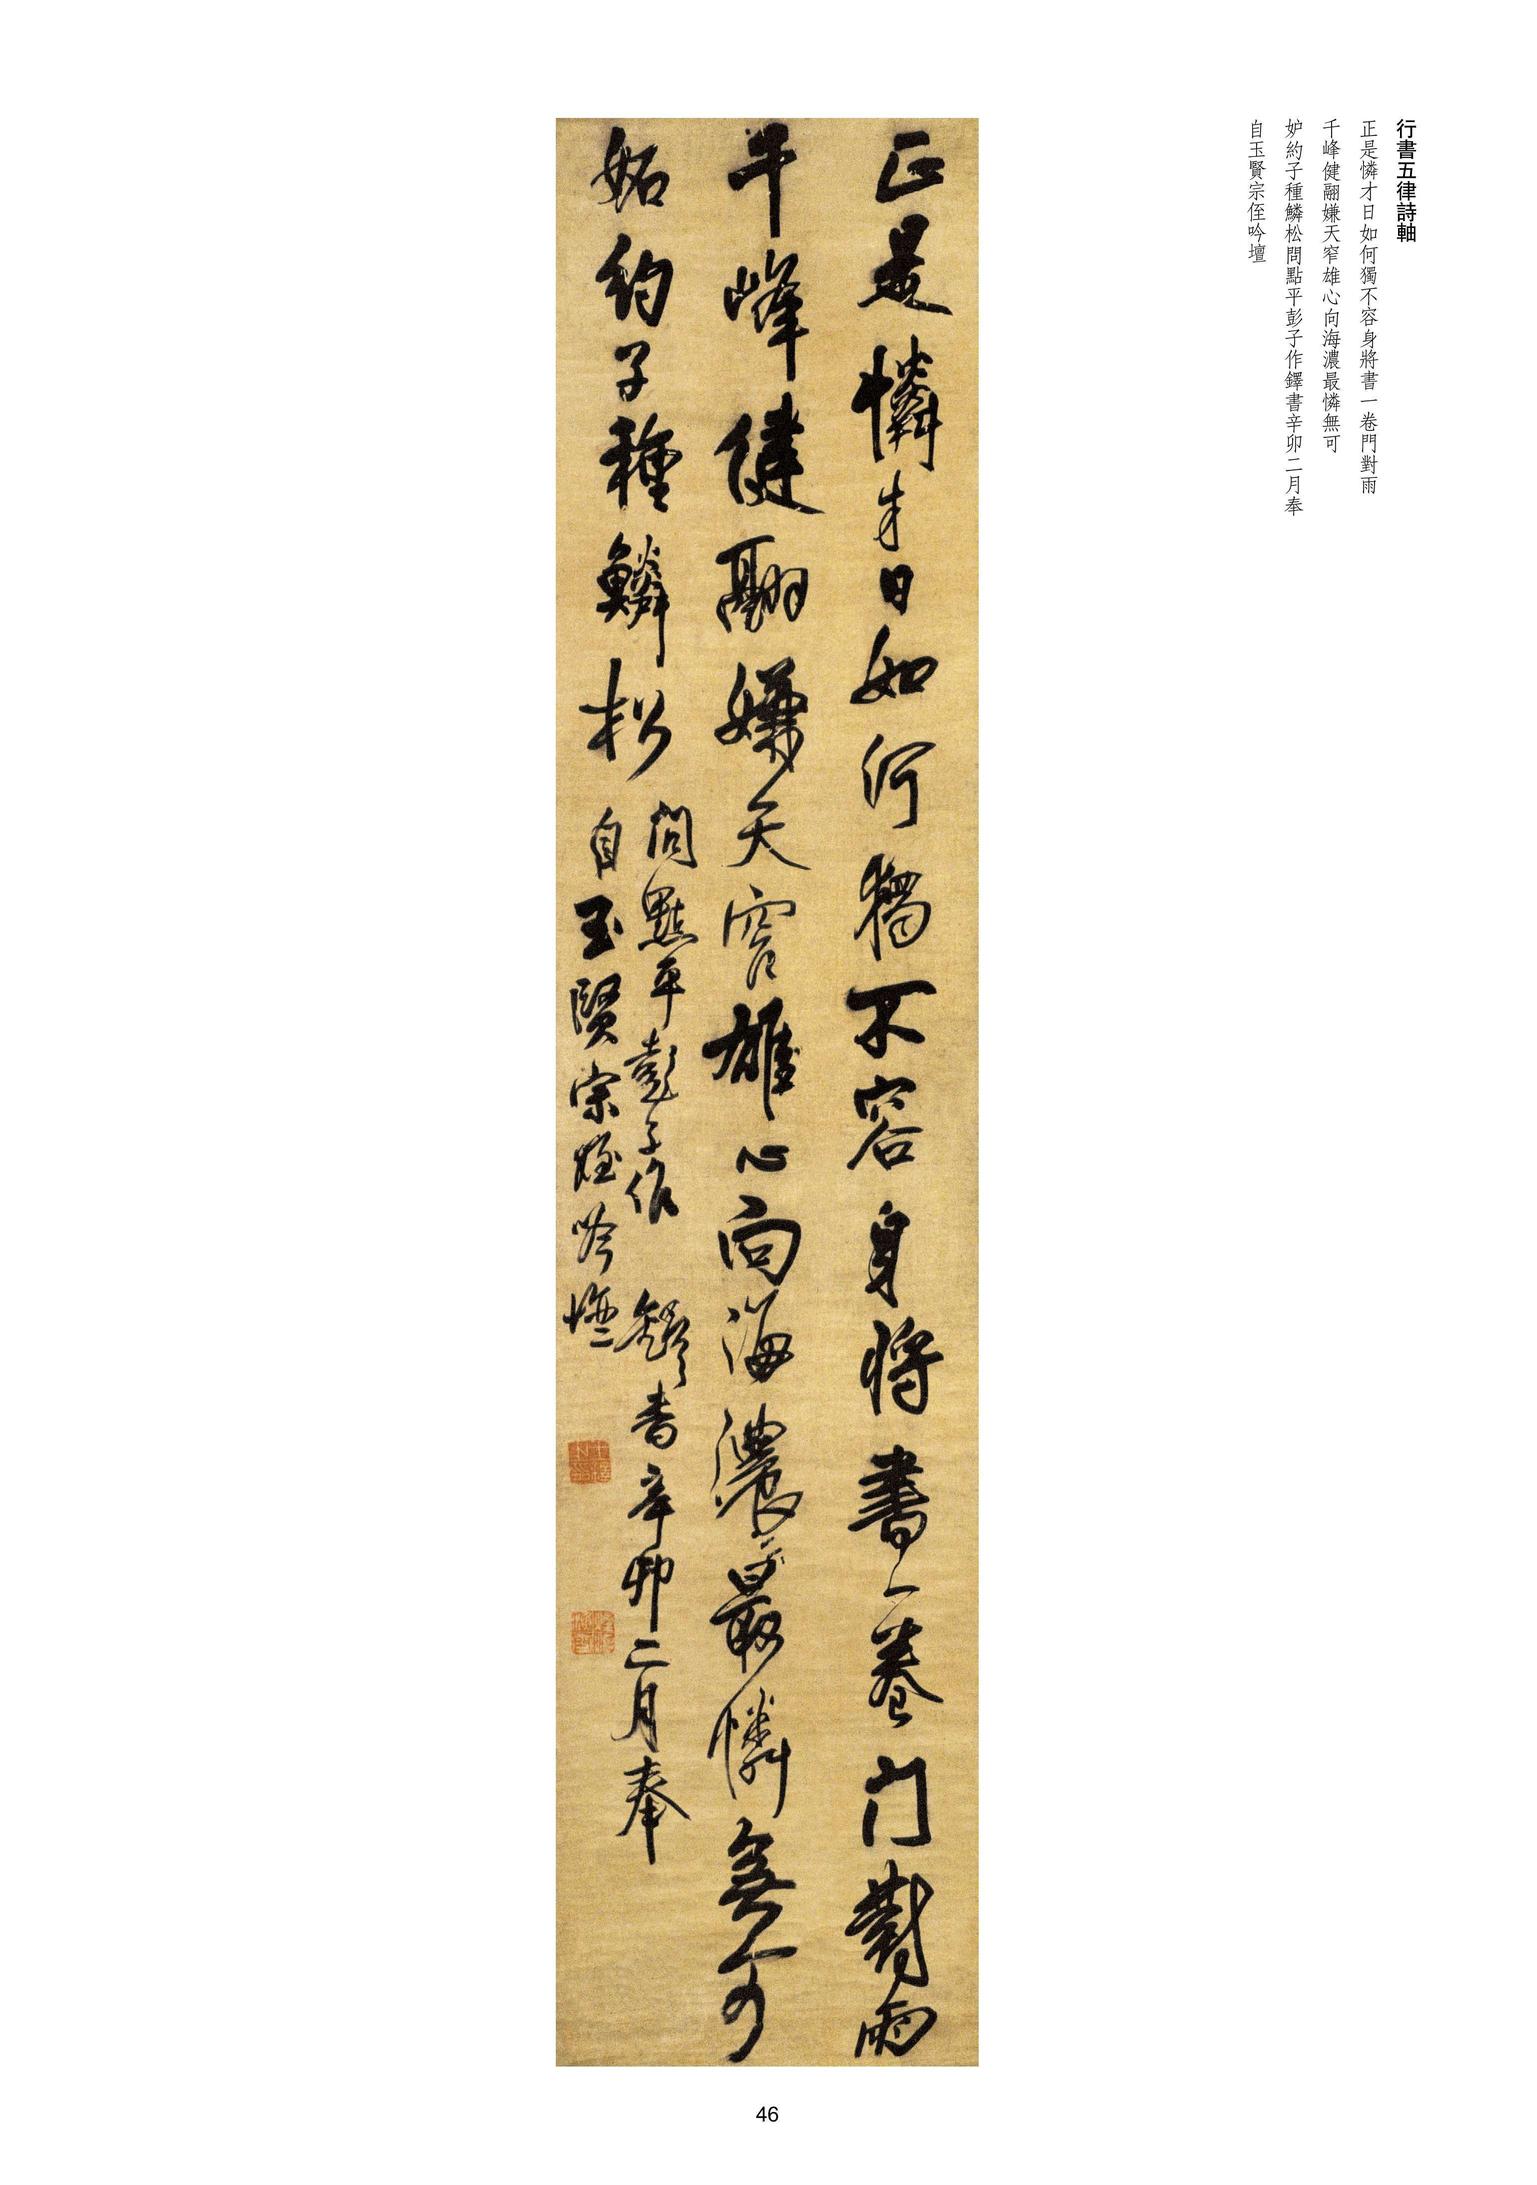 行書五律詩軸
正是憐才日如何獨不容身將書一卷門對雨
千峰健翮嫌天窄雄心向海濃最憐無可
妒約子種鱗松問點平彭子作鐸書辛卯二月奉
自玉賢宗侄吟壇
正是憐才日如何獨不容身將書一卷門對雨
千峰健翮嫌天窄雄心向海濃最憐無可
妬約子種鱗松
問點平彭子作 鐸書辛卯二月奉
自玉賢宗姪吟壇
46